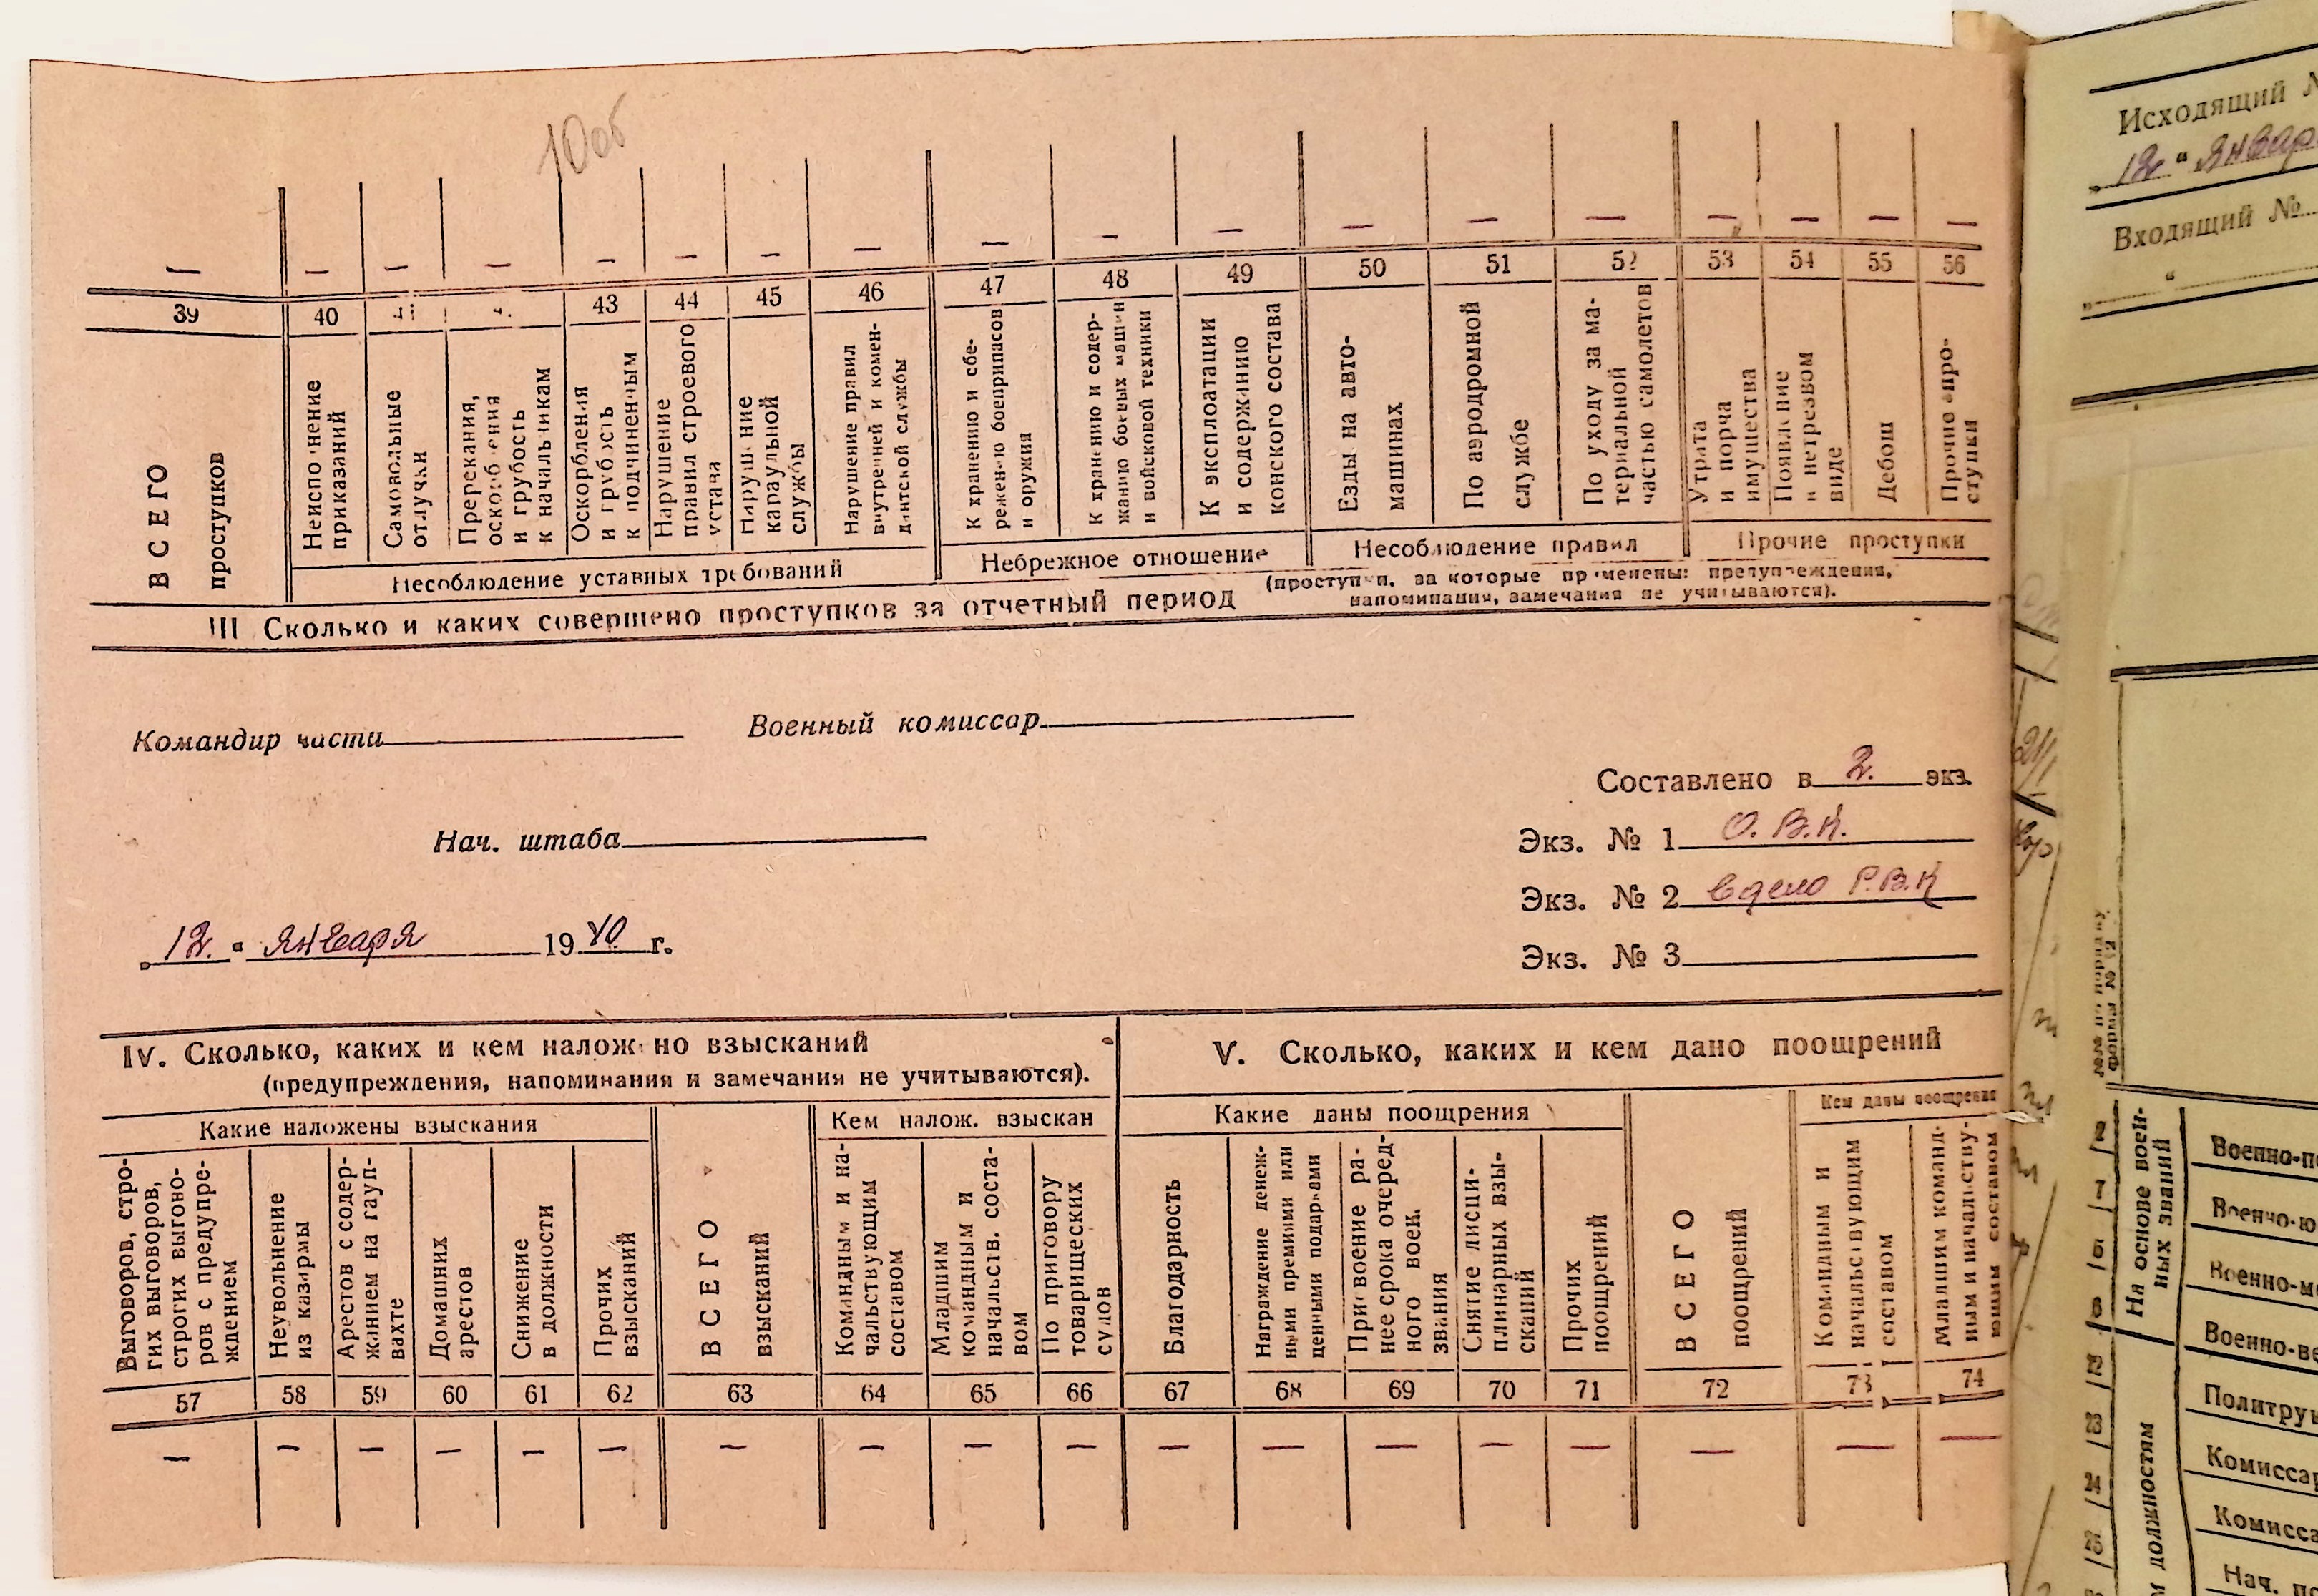 10об
— — — — — — — — — — — — — — — — — —
39 40 43 44 45 46 47 48 49 50 51 52 53 54 55 56
ВСЕГО проступков
Неисполнение приказаний
Самовольные отлучки
Пререкания, оскорбления и грубость к начальникам
Оскорбления и грубость к подчиненным
Нарушение правил строевого устава
Нарушение караульной службы
Нарушение правил внутренней и комендантской службы
К хранению и сбережению боеприпасов и оружия
К хранению и содержанию боевых машин и войсковой техники
К эксплоатации и содержанию конского состава
Езды на автомашинах
По аэродромной службе
По уходу за материальной частью самолетов
Утрата и порча имущества
Появление в нетрезвом виде
Дебош
Прочие проступки
Несоблюдение уставных требований
Небрежное отношение
Несоблюдение правил
Прочие проступки
III Сколько и каких совершено проступков за отчетный период
(проступки, за которые применены: предупреждения,
напоминания, замечания не учитываются).
Командир части
Военный комиссар
Составлено в 2. экз.
Нач. штаба
Экз. № 1 О.В.К.
Экз. № 2 в дело Р.В.К
„12." января 1940 г.
Экз. № 3
IV. Сколько, каких и кем наложено взысканий
(предупреждения, напоминания и замечания не учитываются).
V. Сколько, каких и кем дано поощрений
Какие наложены взыскания
Кем налож. взыскан
Какие даны поощрения
Кем даны поощрения
Выговоров, стро-
гих выговоров,
строгих выгово-
ров с предупре-
ждением
Неувольнение
из казармы
Арестов с содер-
жанием на гауп-
вахте
Домашних
арестов
Снижение
в должности
Прочих
взысканий
ВСЕГО
взысканий
Командным и на-
чальствующим
составом
Младшим
командным и
начальств. соста-
вом
По приговору
товарищеских
судов
Благодарность
Награждение денеж-
ными премиями или
ценными подарками
Присвоение ра-
нее срока очеред-
ного воен.
звания
Снятие дисци-
плинарных взы-
сканий
Прочих
поощрений
ВСЕГО
поощрений
Командным и
начальствующим
составом
Младшим команд-
ным и начальству-
ющим составом
57 58 59 60 61 62 63 64 65 66 67 68 69 70 71 72 73 74
— — — — — — — — — — — — — — — — — —
Исходящий №
„12" январ
Входящий №
"
На основе воен-
ных званий
должностям
Военно-п
Военно-ю
Военно-м
Военно-ве
Политру
Комисса
Комисса
Нач.